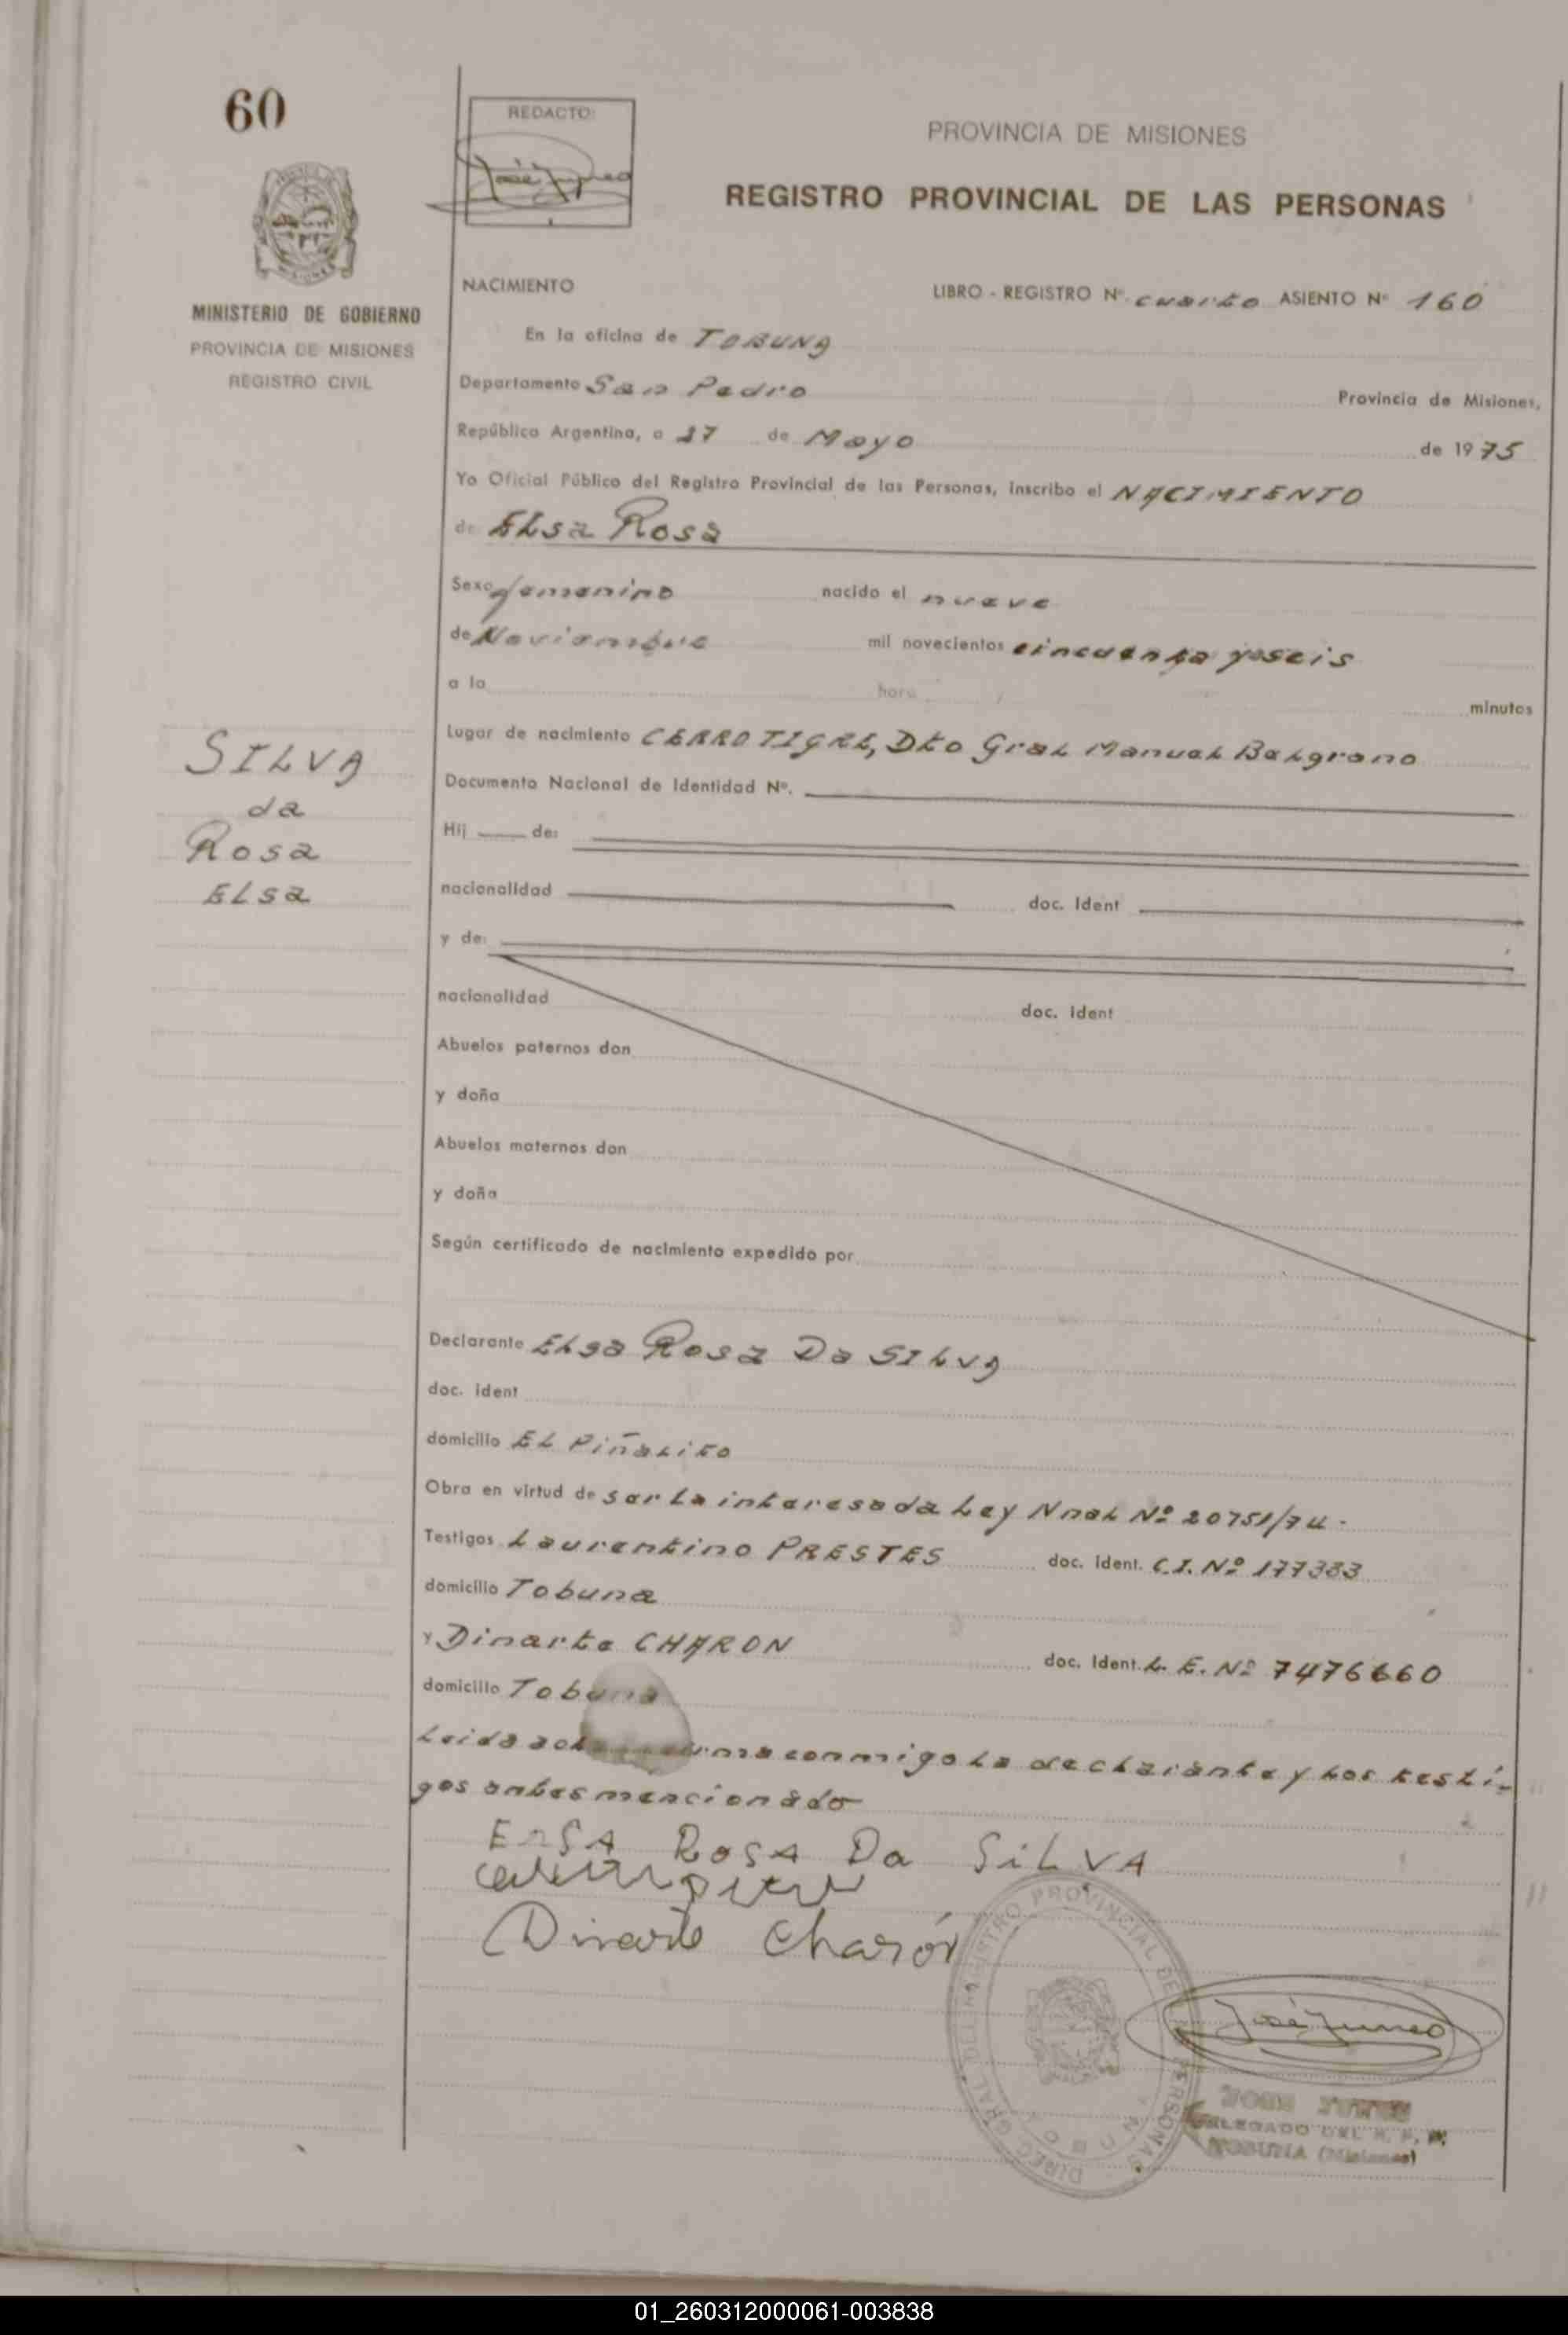 60
REDACTO:
PROVINCIA DE MISIONES
REGISTRO PROVINCIAL DE LAS PERSONAS
MINISTERIO DE GOBIERNO
PROVINCIA DE MISIONES
REGISTRO CIVIL
NACIMIENTO LIBRO - REGISTRO Nº cuarto ASIENTO Nº 160
En la oficina de TOBUNA
Departamento San Pedro Provincia de Misiones,
República Argentina, a 27 de Mayo de 1975
Yo Oficial Público del Registro Provincial de las Personas, inscribo el NACIMIENTO
de ELsa Rosa
Sexo femenino nacido el nueve
de Noviembre mil novecientos cincuenta y seis
a la hora minutos
Lugar de nacimiento CERRO TIGRE, Dto Gral Manuel Belgrano
Documento Nacional de Identidad Nº.
SILVA
da
Rosa
ELsa
Hij de:
nacionalidad doc. Ident
y de:
nacionalidad doc. ident
Abuelos paternos don
y doña
Abuelos maternos don
y doña
Según certificado de nacimiento expedido por
Declarante ELsa Rosa Da SILVA
doc. ident
domicilio EL Piñalito
Obra en virtud de ser la interesada Ley Nnal Nº 20751/74.-
Testigos Laurentino PRESTES doc. ident. C.I. Nº 177383
domicilio Tobuna
y Dinarte CHARON doc. Ident. L. E. Nº 7476660
domicilio Tobuna
Leida conmigo la declarante y los testi-
gos antes mencionado
ELSA ROSA Da SiLVA
Dinarte Charón
DIREC. GRAL. DEL REGISTRO PROVINCIAL DE PERSONAS
TOBUNA
José Junes
DELEGADO DEL R. P. P.
TOBUNA (Misiones)
01_260312000061-003838